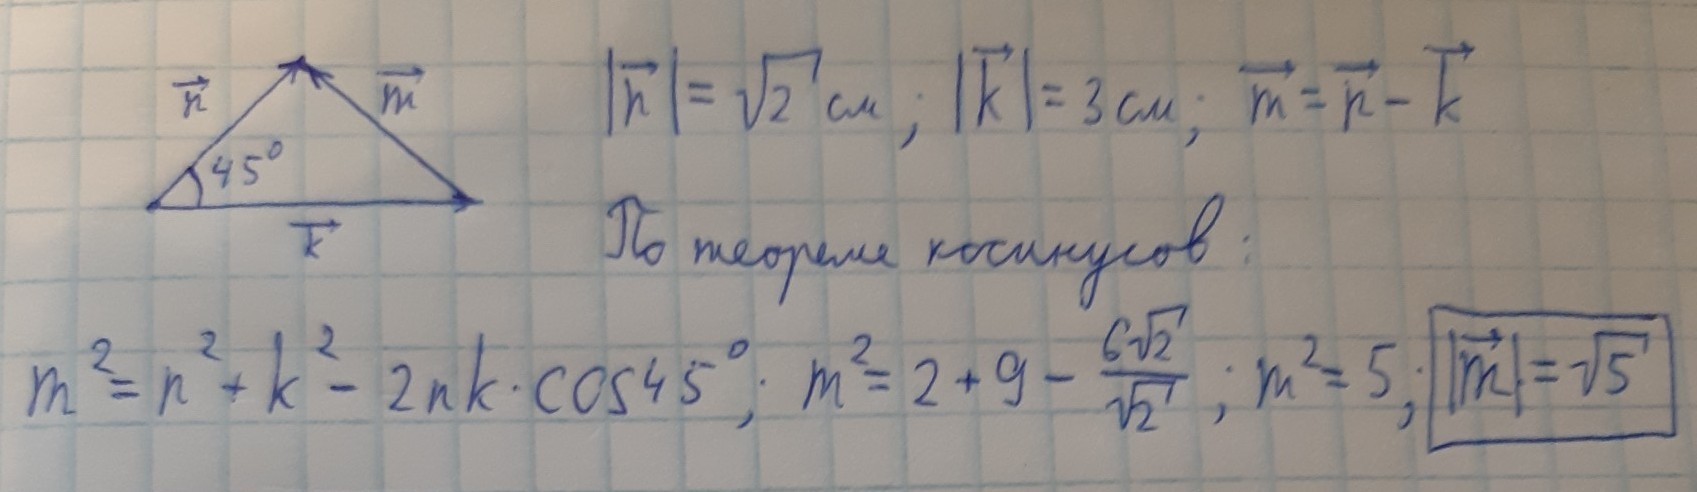 n⃗ m⃗ |n⃗| = √2 см; |k⃗| = 3 см; m⃗ = n⃗ - k⃗
45°
k⃗ По теореме косинусов:
m² = n² + k² - 2nk · cos45°; m² = 2 + 9 - 6√2/√2; m² = 5; |m⃗| = √5